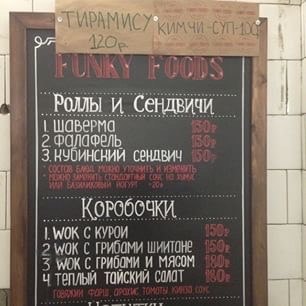 ТИРАМИСУ
120р.
КИМЧИ-СУП-100
FUNKY FOODS
РОЛЛЫ И СЕНДВИЧИ
1. ШАВЕРМА 150₽
2. ФАЛАФЕЛЬ 150₽
3. КУБИНСКИЙ СЕНДВИЧ 150₽
* СОСТАВ БЛЮД МОЖНО УТОЧНИТЬ И ИЗМЕНИТЬ
* МОЖНО ЗАМЕНИТЬ СТАНДАРТНЫЙ СОУС НА ХУМУС
ИЛИ БАЗИЛИКОВЫЙ ЙОГУРТ +20₽
КОРОБОЧКИ
1. WOK С КУРОЙ 150₽
2 WOK С ГРИБАМИ ШИИТАКЕ 150₽
3 WOK С ГРИБАМИ И МЯСОМ 180₽
4 ТЕПЛЫЙ ТАЙСКИЙ САЛАТ 180₽
ГОВЯЖИЙ ФАРШ, АРАХИС, ТОМАТЫ КИНЗА СОУС